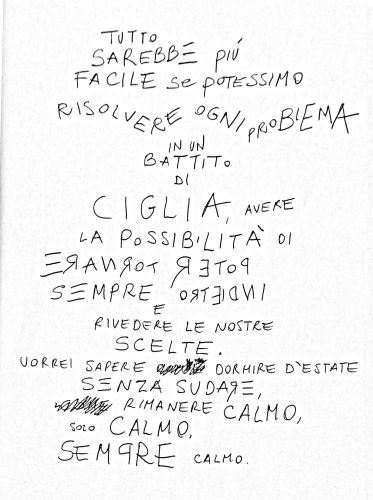 TUTTO
SAREBBE PIÚ
FACILE SE POTESSIMO
RISOLVERE OGNI PROBLEMA
IN UN
BATTITO
DI
CIGLIA, AVERE
LA POSSIBILITÀ DI
POTER TORNARE
SEMPRE INDIETRO
E
RIVEDERE LE NOSTRE
SCELTE.
VORREI SAPERE DORMIRE D'ESTATE
SENZA SUDARE,
RIMANERE CALMO,
SOLO CALMO,
SEMPRE CALMO.